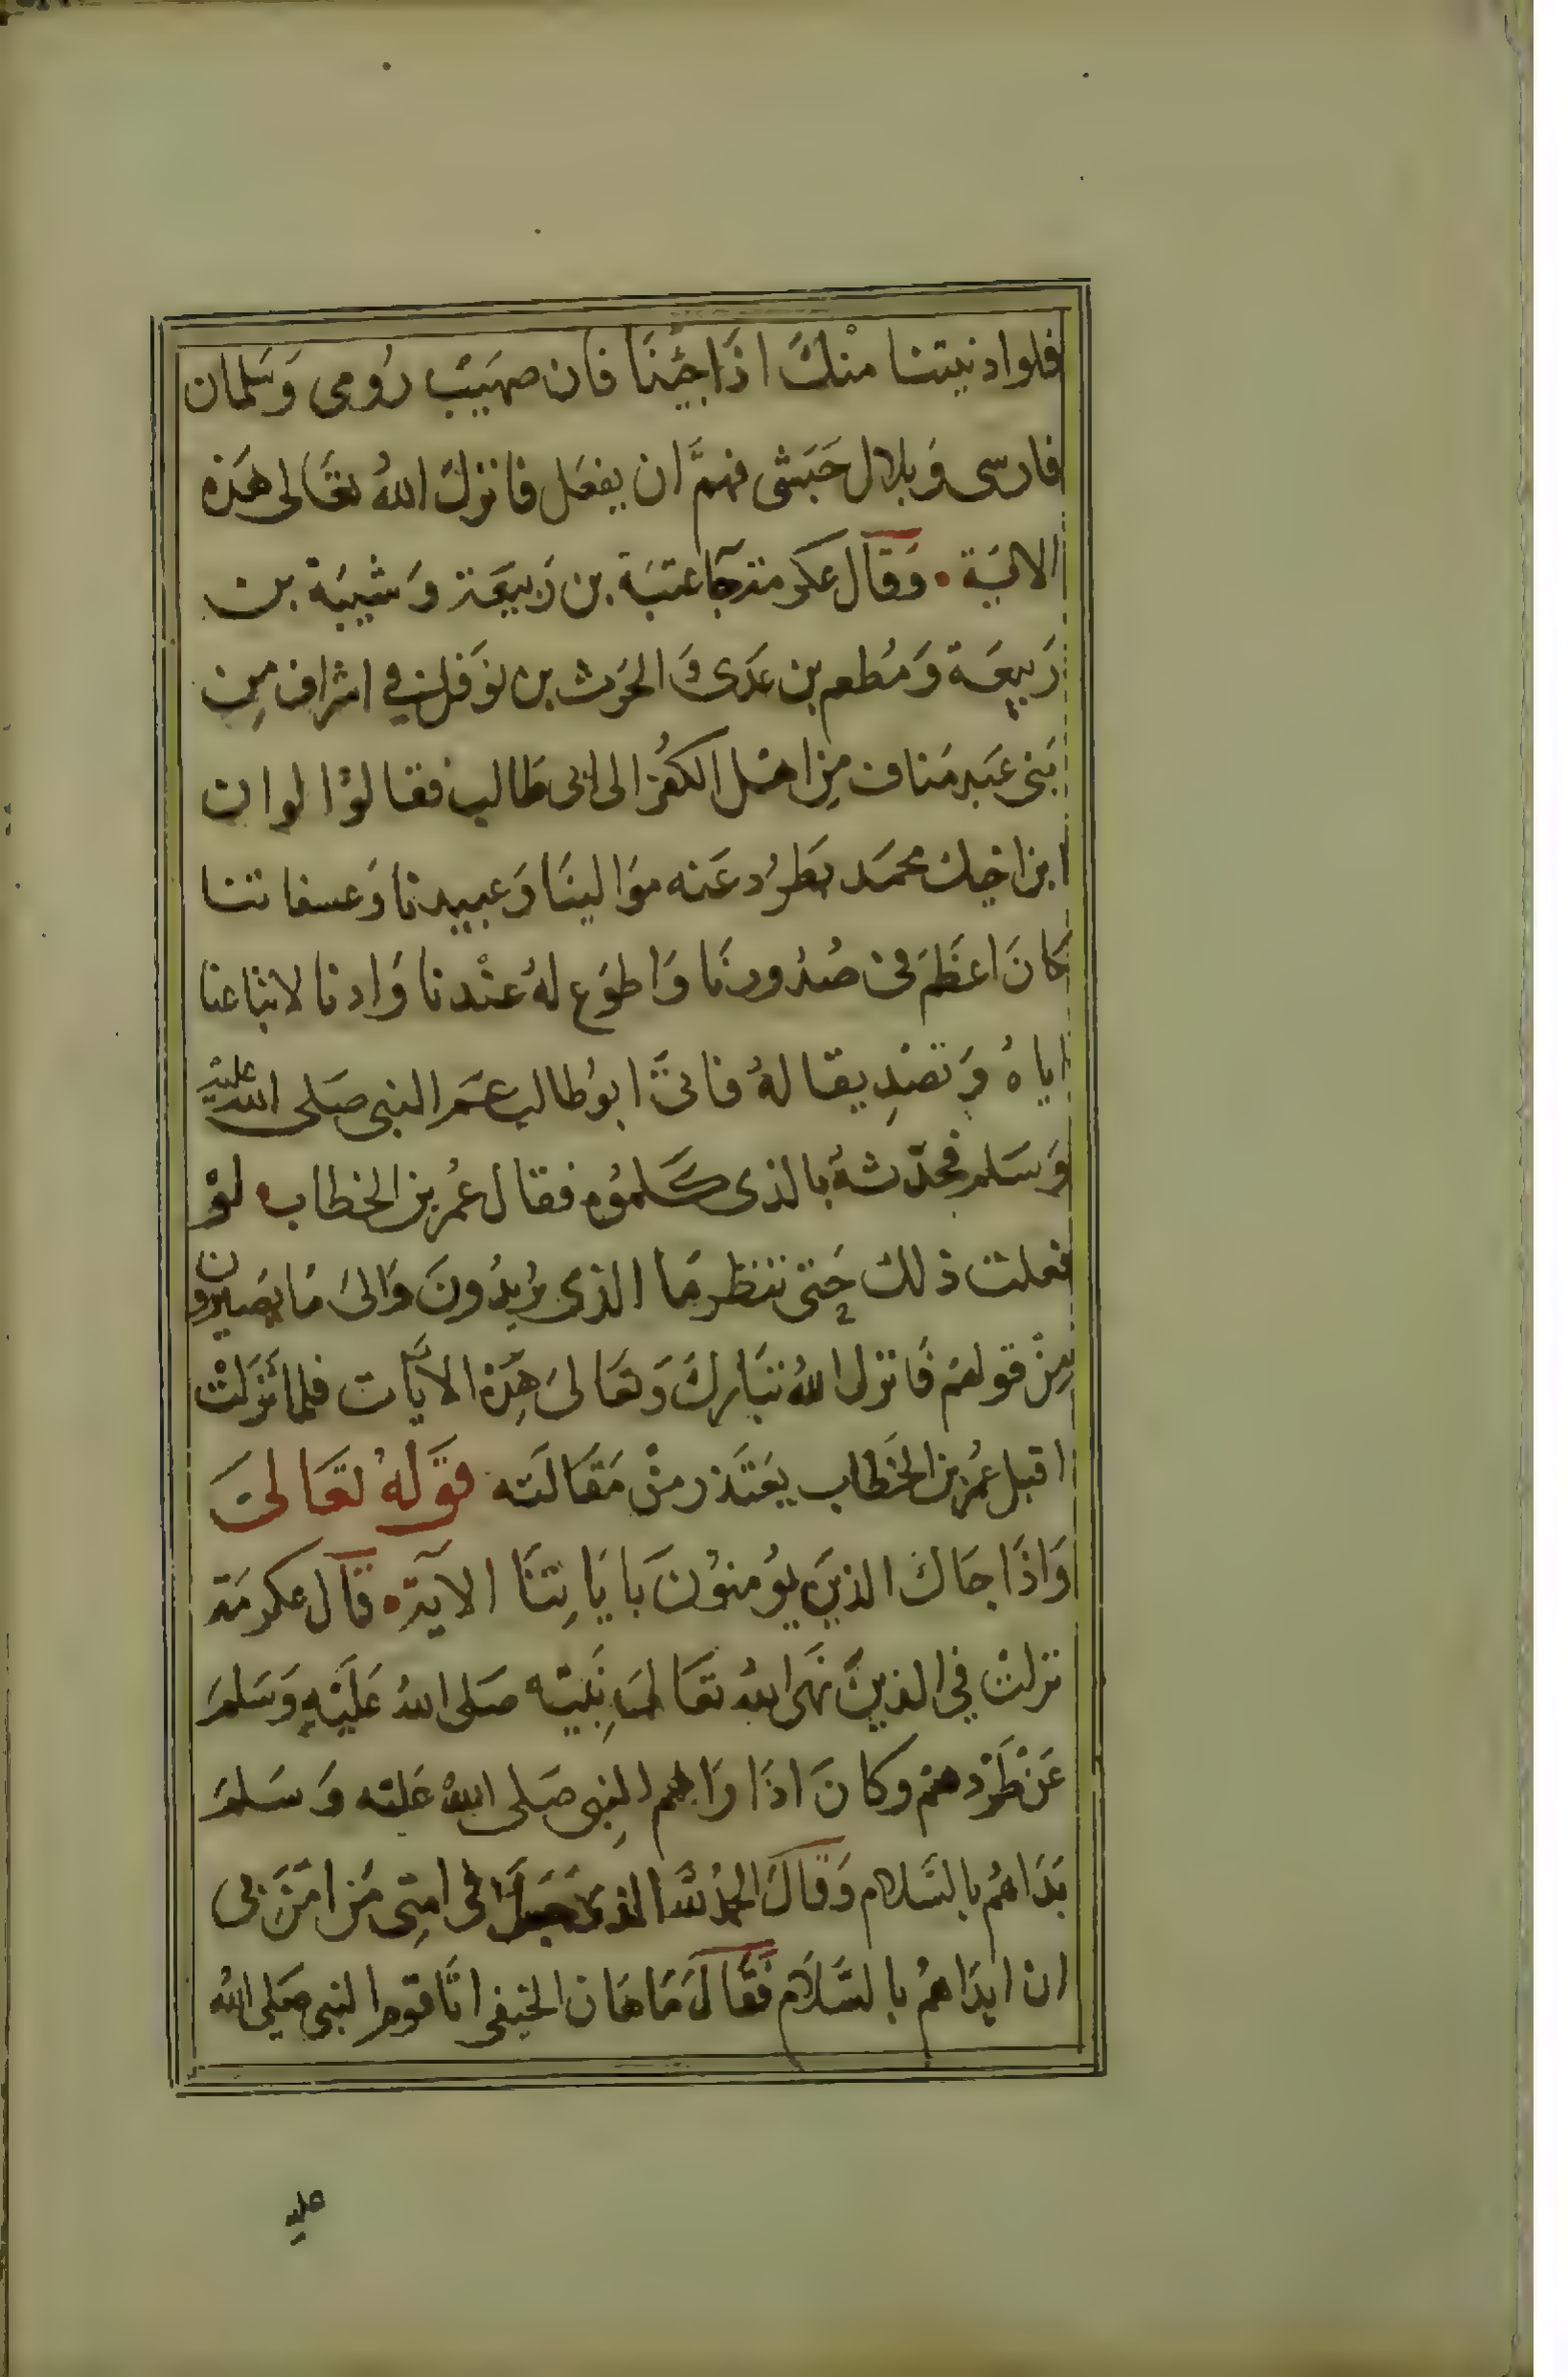 فلوادنيتنا منْكَ اذَاجئنَا فان صهَيبْ رُومى وَسَلمان
فارسى وَبلال حَبَشى فهمَّ ان يفعَل فانزلَ اللهُ تعَالى هَذه
الايَة . وَقَال عكرمة جآعتبَة بن رَبيعَة وَشيبَة بن
رَبيعَة وَمُطعم بن عَدى وَالحَرث بن نوَفل في اشراف مِن
بَنى عَبد مَناف مِن اهْل الكفُر الى ابى طَالب فقالوُا لوان
ابن اخيك محمَد يَطرُد عَنه موَالينَا وَعبيدنا وَعسفاتنا
كانَ اعَظَم فى صُدُورنَا وَاطوَع لهُ عنْدنا وَادنا لاتباعنا
اياهُ وَتصَدِيقا لهُ فاتىَ ابوُطالب عَم النبى صَلى الله عليْه
وَسَلم فحدّثهُ بالذى كَلموُه فقال عُمر بن الخطاب لوْ
فعلت ذلك حَتى ننظر مَا الذى يُريدُونَ وَالىَ مَا يَصيرون
مِنْ قولهمْ فَانزل اللهُ تبَاركَ وَتعَالىَ هَذِهْ الاَيَات فلما نَزَلتْ
اقبل عُمر بن الخَطاب يعَتَذر منْ مَقَالَته قَوَلهُ تعَالىَ
وَاذَا جَاكَ الذينَ يوُمنوُنَ بايَاتِنَا الايَة . قَال عكرمَة
نزلتْ في الذينَ نهَى اللهُ تعَالىَ نَبيَه صَلى اللهُ عَليَهِ وَسَلمَ
عَنْ طَرْدهمْ وكانَ اذَا رَاهم النبِى صَلى اللهُ عَليَه وَسَلمَ
بَدَاهُم بالسَلام وَقَالَ الحمْدُ للهَ الذى جَعَلَ فى امَتِى مَن امَرَنَى
ان ابدَاهُم بالسَّلاَم فَقَالَ مَاهَان الحنيفى اتَا قوم النبى صَلى اللهُ
عليه